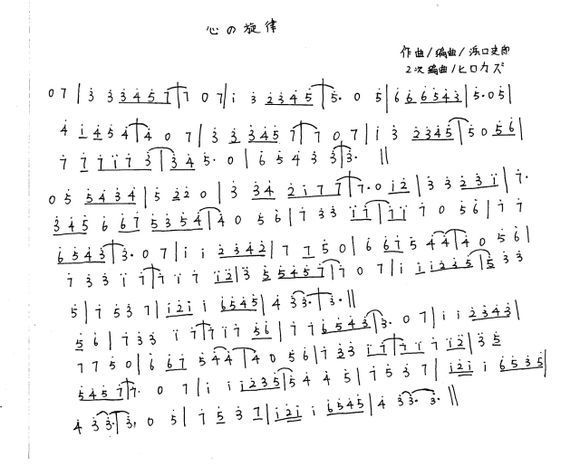 心の旋律
作曲/編曲/浜口史郎
2次編曲/ヒロカズ
0 7 | 3 3 3 4 5 7 7 0 7 | i 3 2 3 4 5 5. 0 5 | 6 6 6 5 4 3 | 5. 0 5 |
4 1 4 5 4 4 0 7 | 3 3 3 4 5 7 7 0 7 | i 3 2 3 4 5 | 5 0 5 6 |
7 7 7 i 7 3 | 3 4 5. 0 | 6 5 4 3 3 | 3. ||
0 5 5 4 3 4 | 5 2 2 0 | 3 3 4 2 i 7 7 | 7. 0 i 2 | 3 3 2 3 i | 7.
3 4 5 6 6 7 5 3 5 4 | 4 0 5 6 | 7 3 3 i i | i i 7 0 5 6 | 7 7
6 5 4 3 | 3. 0 7 | i i 2 3 4 2 | 7 7 5 0 | 6 6 7 5 4 4 | 4 0 5 6 |
7 3 3 i 7 | 7 i 7 i 2 | 3 5 5 4 5 7 | 7 0 7 | i i i 2 3 5 | 5 3 3
5 | 7 5 3 7 | i 2 i i 6 5 4 5 | 4 3 3. | 3. ||
5 6 | 7 3 3 i 7 | 7 i 7 5 6 | 7 7 6 5 4 3 | 3. 0 7 | i i 2 3 4 3 |
7 7 5 0 | 6 6 7 5 4 4 | 4 0 5 6 | 7 3 3 i 7 | 7 i 7 i 2 | 3 5
5 4 5 7 | 7. 0 7 | i i 2 3 5 | 5 4 4 5 | 7 5 3 7 | i 2 i i 6 5 3 5 |
4 3 3. | 3. 0 5 | 7 5 3 7 | i 2 i i 6 5 4 5 | 4 3 3. 3. ||